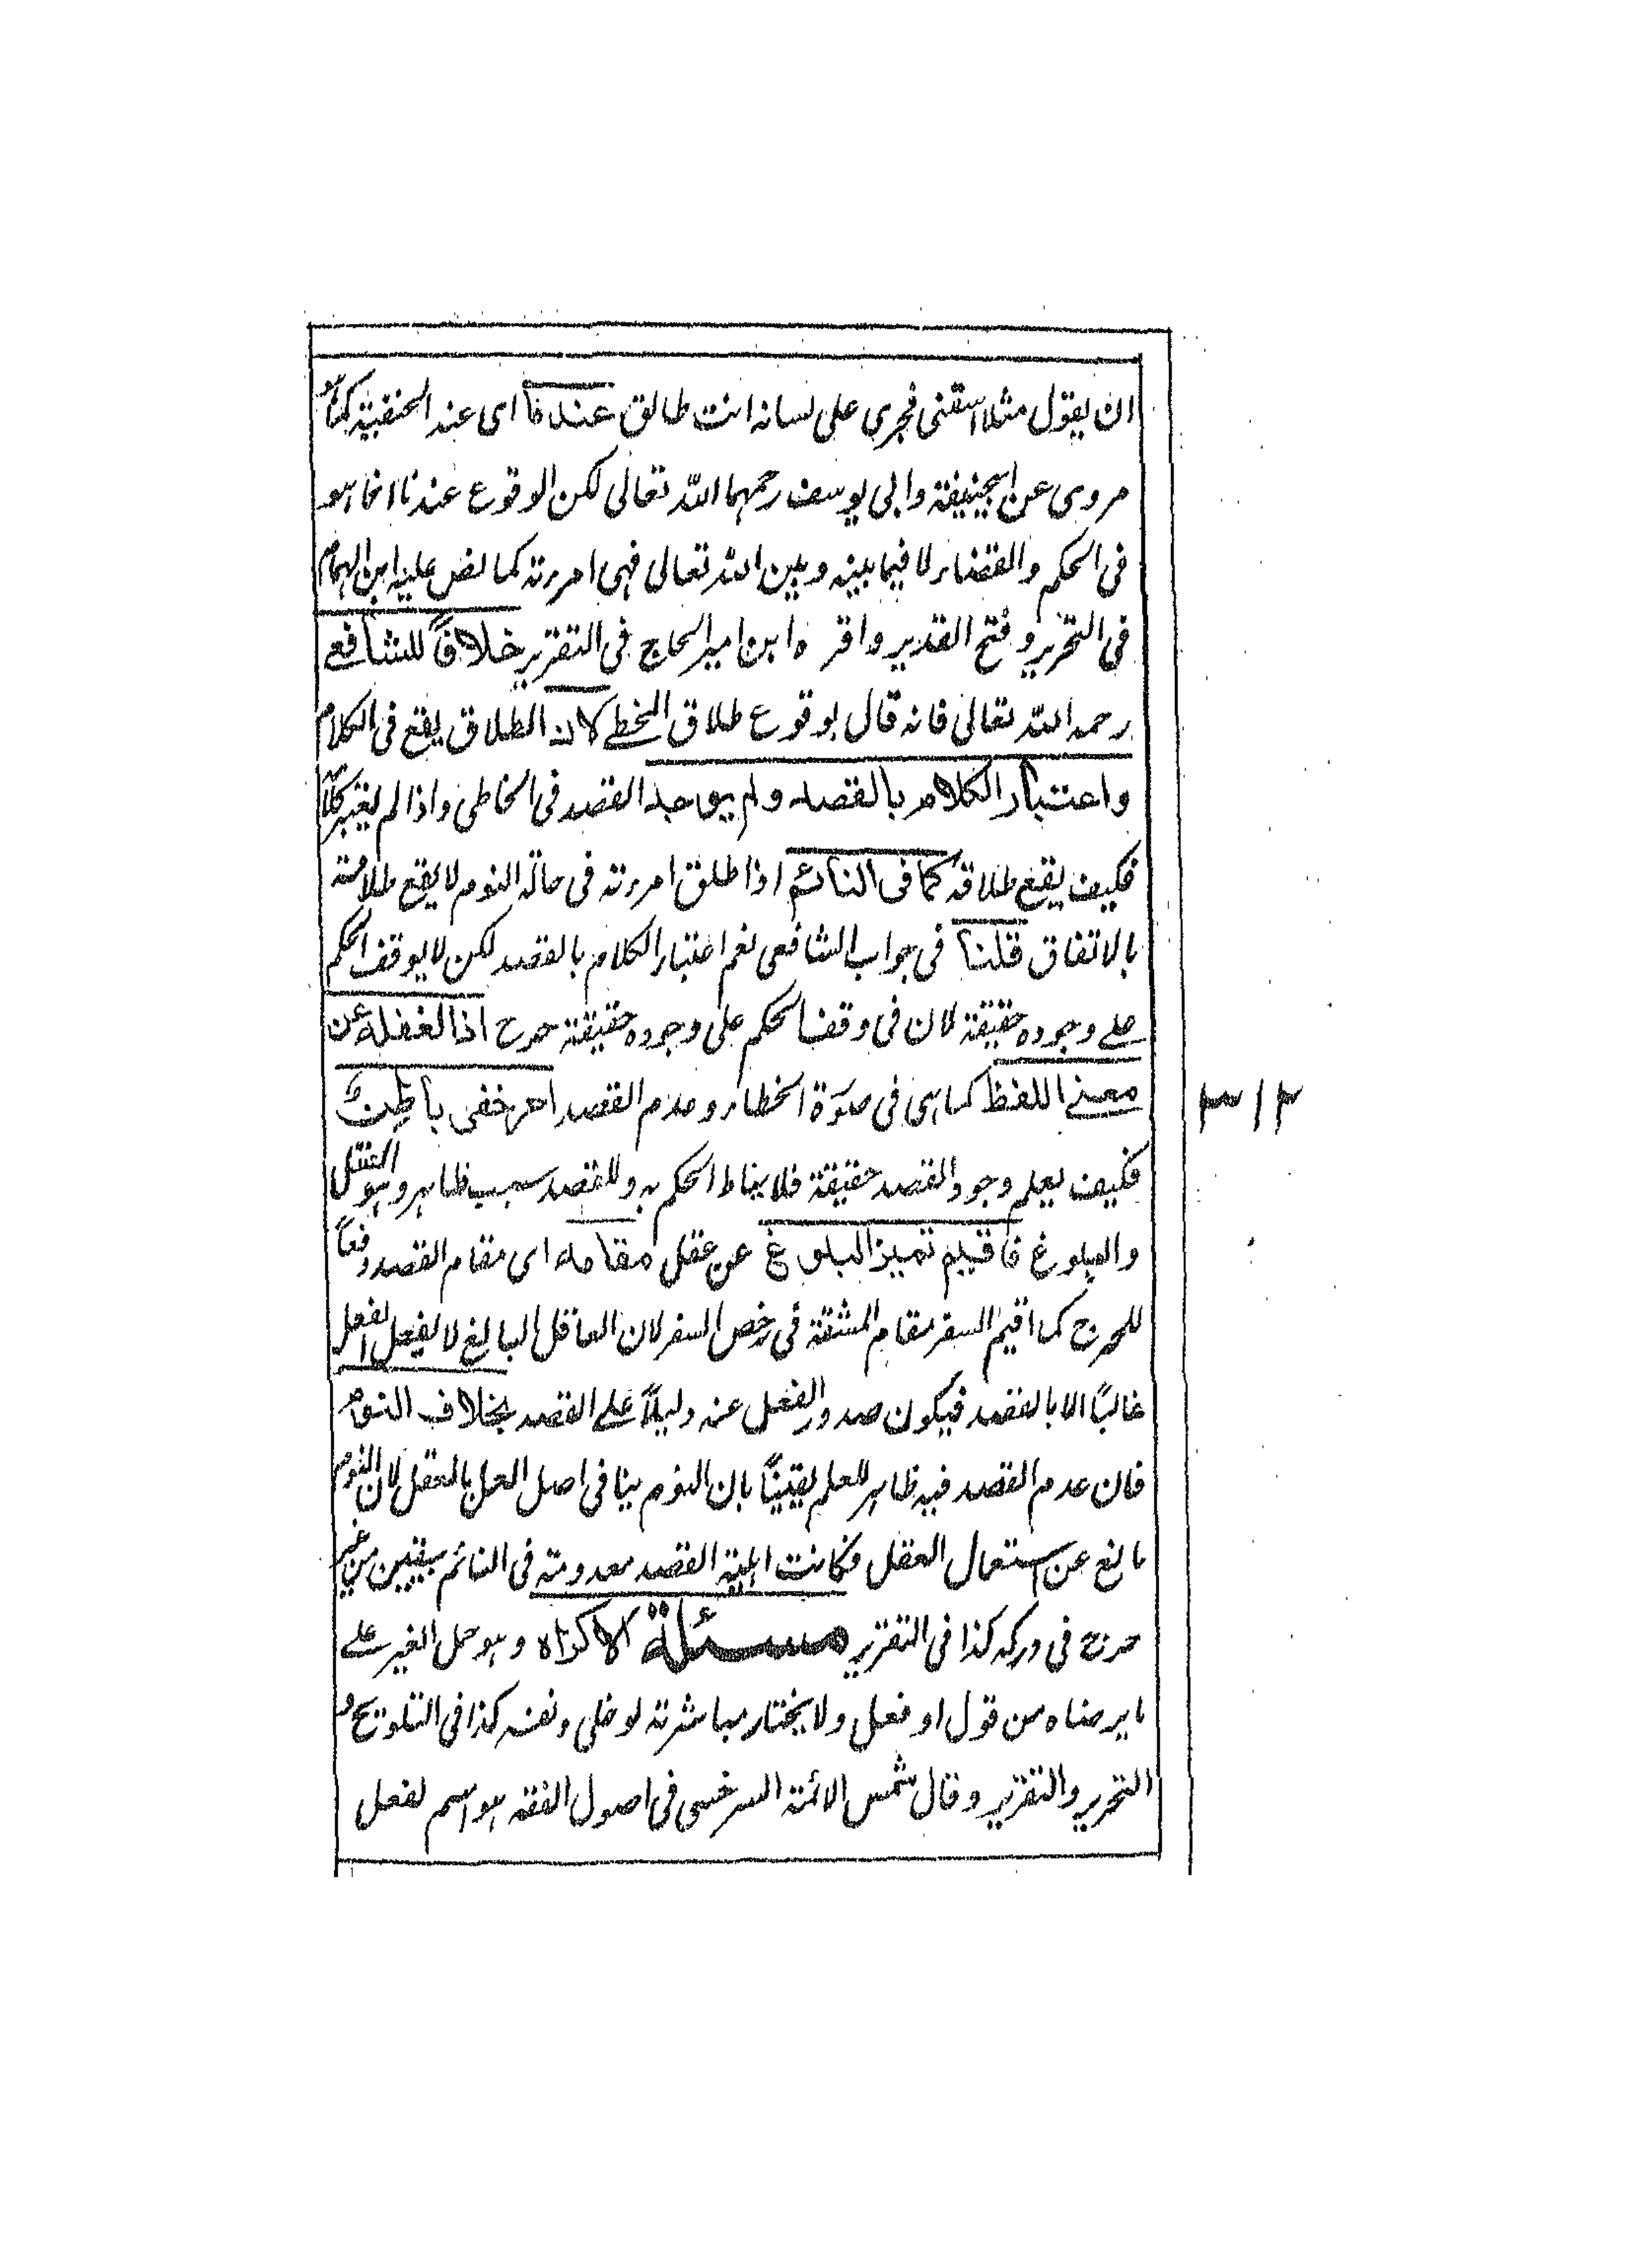 ان يقول مثلا اسقنى فجرى على لسانه انت طالق عندنا اى عند الحنفية كما هو
مروى عن ابيحنيفة وابى يوسف رحمهما الله تعالى لكن الوقوع عندنا انما هو
فى الحكم والقضاء لا فيما بينه وبين الله تعالى فهى امرءته كما نص عليه ابن الهمام
فى التحرير و فتح القدير واقره ابن امير الحاج فى التقرير خلافًا للشافعے
رحمه الله تعالى فانه قال بوقوع طلاق المخطے لان الطلاق يقع فى الكلام
واعتبار الكلام بالقصد ولم يوجد القصد فى الخاطى واذا لم يعتبر كلامه
فكيف يقع طلاقه كما فى النائم اذا طلق امرءته فى حالة النوم لا يقع طلاقه
بالاتفاق قلنا فى جواب الشافعى نعم اعتبار الكلام بالقصد لكن لا يوقف الحكم
علے وجوده حقيقة لان فى وقف الحكم على وجوده حقيقة حرج اذ الغفلة عن
معنے اللفظ كما هى فى صورة الخطاء وعدم القصد امر خفى باطن
فكيف يعلم وجود القصد حقيقة فلا يناط الحكم به وللقصد سبب ظاهر وهو العقل
والبلوغ فاقيم تميز البلوغ عن عقل مقامه اى مقام القصد دفعًا
للحرج كما اقيم السفر مقام المشقة فى رخص السفر لان العاقل البالغ لا يفعل الفعل
غالبًا الا بالقصد فيكون صدور الفعل عنه دليلًا علے القصد بخلاف النوم
فان عدم القصد فيه ظاهر للعلم يقينًا بان النوم ينافى اصل العمل بالعقل لان النوم
مانع عن استعمال العقل فكانت اهلية القصد معدومة فى النائم بيقين من غير
حرج فى دركه كذا فى التقرير مسئلة الاكراه وهو حمل الغير علے
ما يرضاه من قول او فعل ولا يختار مباشرته لو خلى ونفسه كذا فى التلويح و
التحرير والتقرير وقال شمس الائمة السرخسى فى اصول الفقه هو اسم لفعل
٣١٢